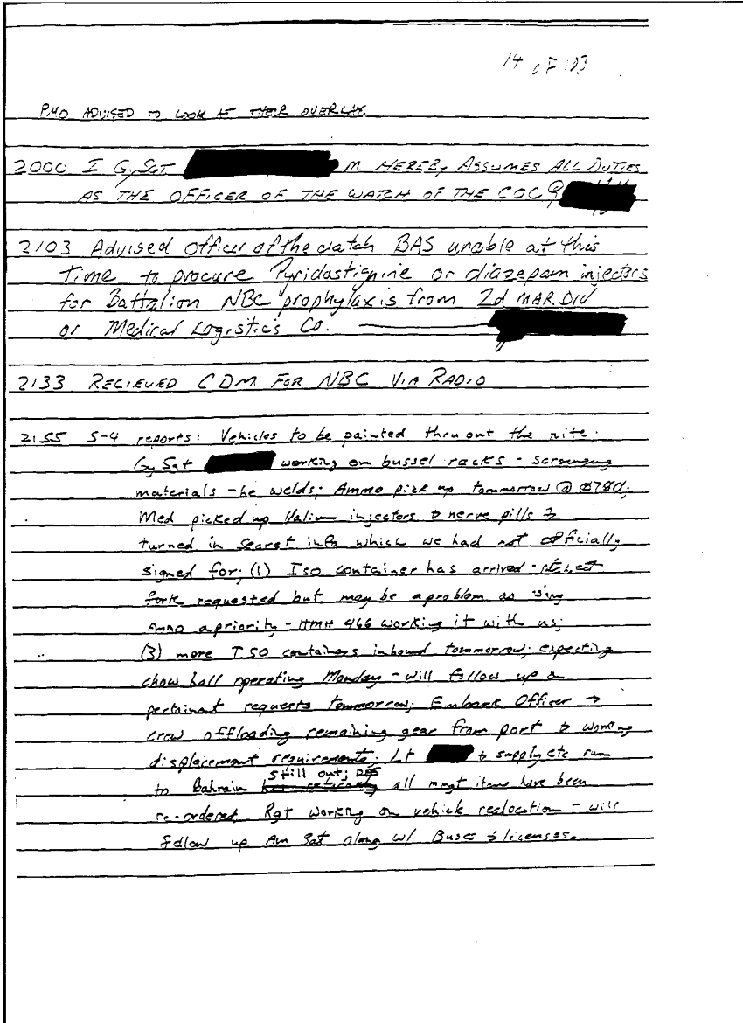 14 OF 183
PMO ADVISED TO LOOK AT THEIR OVERLAY
2000 I GySgt M HEREBY ASSUMES ALL DUTIES
AS THE OFFICER OF THE WATCH OF THE COC
2103 Advised Officer of the Watch BAS unable at this
time to procure Pyridostigmine or diazepam injectors
for Battalion NBC prophylaxis from 2d MAR Div
or Medical Logistics Co.
2133 RECIEVED CDM FOR NBC VIA RADIO
2155 S-4 reports: Vehicles to be painted thruout the nite.
Gy Sgt working on bussel racks - scrounging
materials - he welds; Ammo pick up tommorrow @ 0780;
Med picked up Valium injectors & nerve pills &
turned in secret info which we had not officially
signed for; (1) ISO container has arrived -
fork requested but may be a problem as
ammo a priority - HMH 466 working it with us;
(3) more ISO containers inbound tommorrow; expecting
chow hall operating Monday - will follow up on
pertainant requests tommorrow; Embark Officer →
crew offloading remaining gear from port & working
displacement requirements; Lt & supply etc run
to Bahrain still out; all mgmt items have been
re-ordered. Rgt working on vehicle reallocation - will
follow up Am Sat along w/ Buses & licenses.